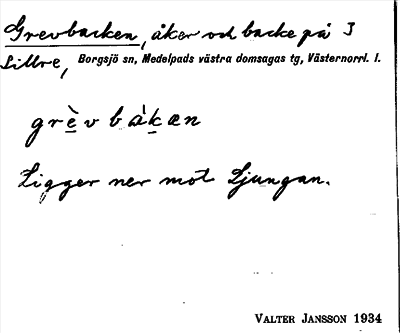 Grevbacken, åker och backe på 3
Lillre, Borgsjö sn, Medelpads västra domsagas tg, Västernorrl. l.
grèvbàkæn
Ligger ner mot Ljungan.
VALTER JANSSON 1934